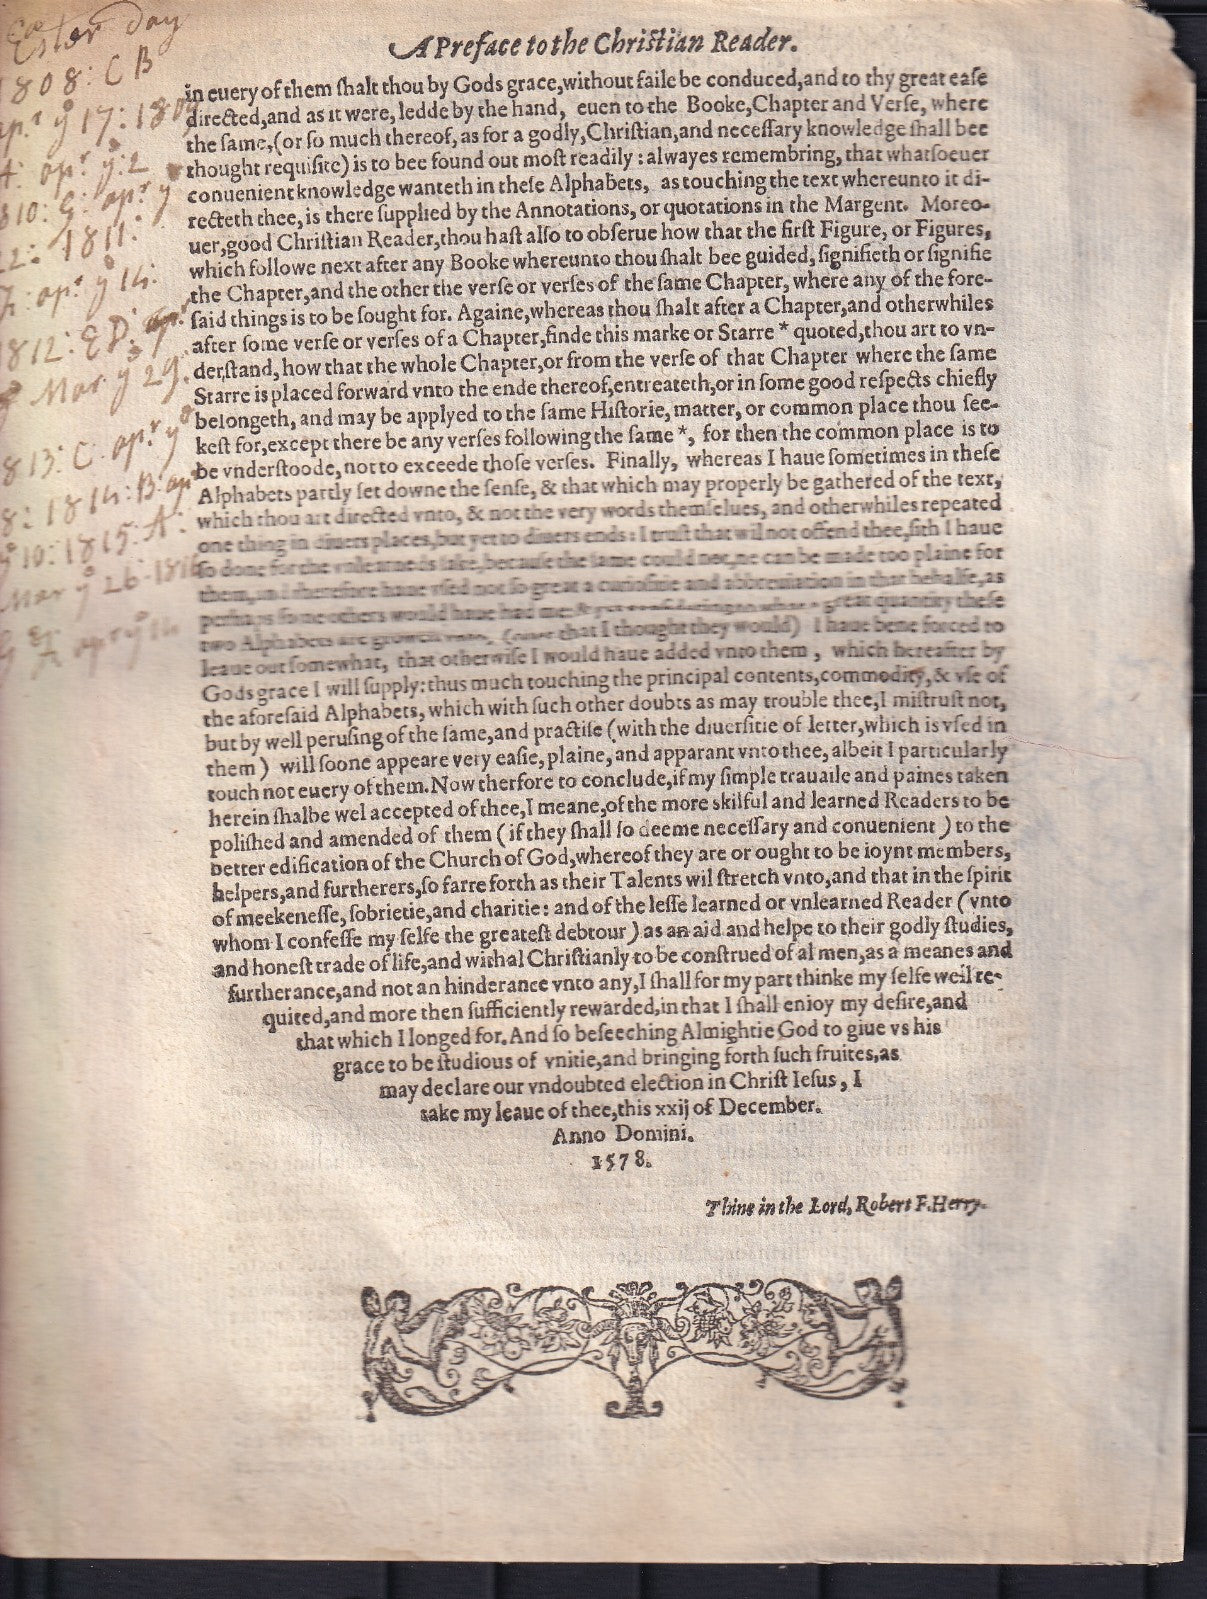 Easter Day
1808: C B
apr. ye 17: 1809
A: apr ye: 2
1810: G: apr ye
22: 1811:
F: apr ye 14:
1812: E D: apr
Mar ye 29:
1813: C apr ye
18: 1814: B: apr
ye 10: 1815: A:
Mar ye 26: 1816
G F apr ye 14
A Preface to the Chriſtian Reader.
in euery of them ſhalt thou by Gods grace,without faile be conduced,and to thy great eaſe
directed,and as it were, ledde by the hand, euen to the Booke,Chapter and Verſe, where
the ſame,(or ſo much thereof, as for a godly,Chriſtian,and neceſſary knowledge ſhall bee
thought requiſite) is to bee found out moſt readily : alwayes remembring, that whatſoeuer
conuenient knowledge wanteth in theſe Alphabets, as touching the text whereunto it di-
recteth thee, is there ſupplied by the Annotations, or quotations in the Margent. Moreo-
uer,good Chriſtian Reader,thou haſt alſo to obſerue how that the firſt Figure, or Figures,
which followe next after any Booke whereunto thou ſhalt bee guided, ſignifieth or ſignifie
the Chapter,and the other the verſe or verſes of the ſame Chapter, where any of the fore-
ſaid things is to be ſought for. Againe,whereas thou ſhalt after a Chapter,and otherwhiles
after ſome verſe or verſes of a Chapter,finde this marke or Starre * quoted,thou art to vn-
derſtand, how that the whole Chapter,or from the verſe of that Chapter where the ſame
Starre is placed forward vnto the ende thereof,entreateth,or in ſome good reſpects chiefly
belongeth, and may be applyed to the ſame Hiſtorie, matter, or common place thou ſee-
keſt for,except there be any verſes following the ſame *, for then the common place is to
be vnderſtoode, not to exceede thoſe verſes. Finally, whereas I haue ſometimes in theſe
Alphabets partly ſet downe the ſenſe, & that which may properly be gathered of the text,
which thou art directed vnto, & not the very words themſelues, and otherwhiles repeated
one thing in diuers places,but yet to diuers ends: I truſt that wil not offend thee,ſith I haue
ſo done for the vnlearneds ſake,becauſe the ſame could not,ne can be made too plaine for
them,and therefore haue vſed not ſo great a curioſitie and abbreuiation in that behalfe,as
perhaps ſome others would haue had me: & yet conſidering great quantity theſe
two Alphabets are growen vnto, that I thought they would) I haue bene forced to
leaue out ſomewhat, that otherwiſe I would haue added vnto them, which hereafter by
Gods grace I will ſupply: thus much touching the principal contents,commodity,& vſe of
the aforeſaid Alphabets, which with ſuch other doubts as may trouble thee,I miſtruſt not,
but by well peruſing of the ſame,and practiſe (with the diuerſitie of letter,which is vſed in
them) will ſoone appeare very eaſie, plaine, and apparant vnto thee, albeit I particularly
touch not euery of them. Now therfore to conclude,if my ſimple trauaile and paines taken
herein ſhalbe wel accepted of thee,I meane,of the more skilful and learned Readers to be
poliſhed and amended of them (if they ſhall ſo deeme neceſſary and conuenient) to the
better edification of the Church of God,whereof they are or ought to be ioynt members,
helpers,and furtherers,ſo farre forth as their Talents wil ſtretch vnto,and that in the ſpirit
of meekeneſſe, ſobrietie,and charitie: and of the leſſe learned or vnlearned Reader (vnto
whom I confeſſe my ſelfe the greateſt debtour) as an aid and helpe to their godly ſtudies,
and honeſt trade of life,and withal Chriſtianly to be conſtrued of al men,as a meanes and
furtherance,and not an hinderance vnto any,I ſhall for my part thinke my ſelfe well re-
quited,and more then ſufficiently rewarded,in that I ſhall enioy my deſire,and
that which I longed for. And ſo beſeeching Almightie God to giue vs his
grace to be ſtudious of vnitie,and bringing forth ſuch fruites,as
may declare our vndoubted election in Chriſt Ieſus, I
take my leaue of thee,this xxij of December.
Anno Domini.
1578.
Thine in the Lord, Robert F.Herry.